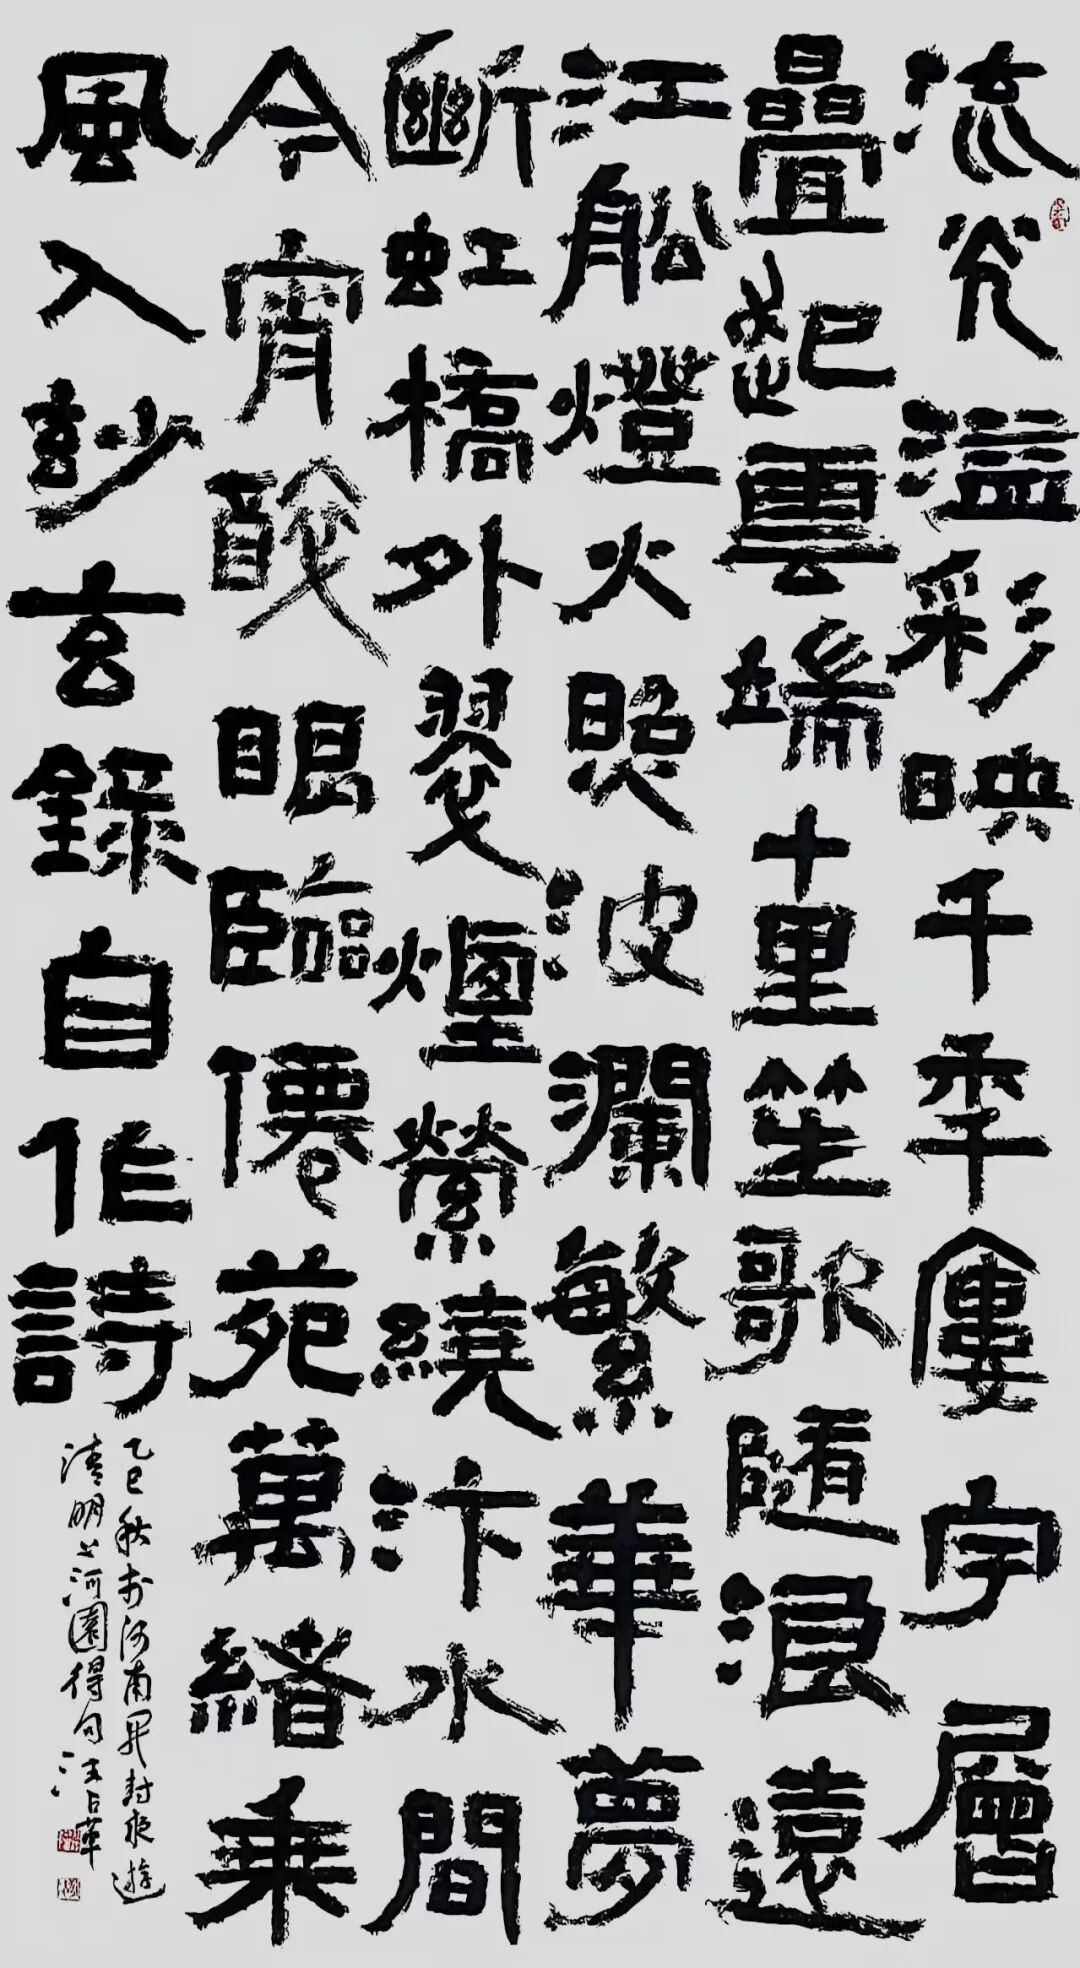 流光溢彩映千秊廔宇層
疊起雲端十里笙歌隨浪遠
江船燈火照波瀾繁華夢
斷虹橋外翠煙縈繞汴水間
今宵醉眼臨僊苑萬緒乘
風入玅玄錄自作詩
乙巳秋於河南開封夜遊
清明上河園得句汪占革